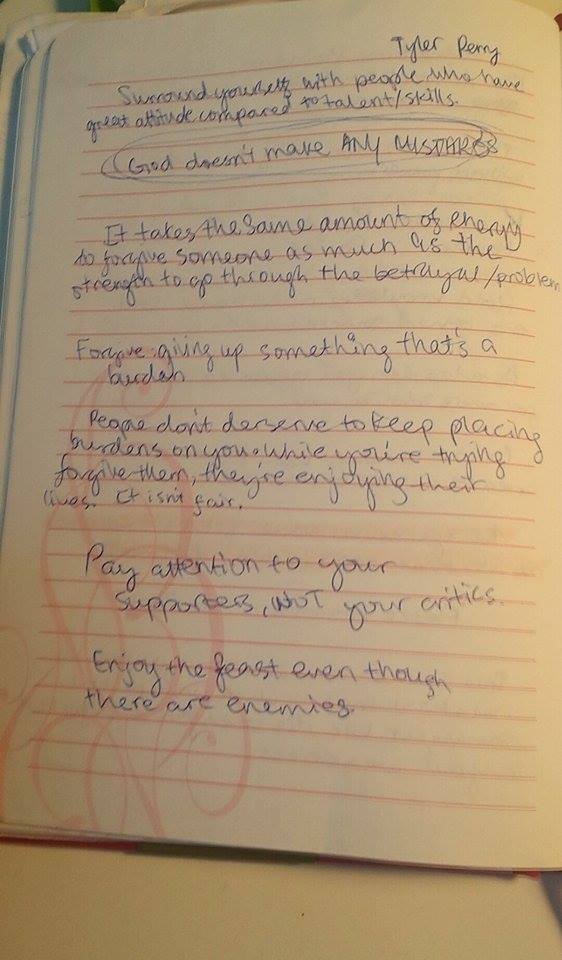 Tyler Perry
Surround yourself with people who have
great attitude compared to talent/skills.
God doesn't make ANY MISTAKES
It takes the same amount of energy
to forgive someone as much as the
strength to go through the betrayal/problem
Forgive: giving up something that's a
burden
People don't deserve to keep placing
burdens on you while you're trying
forgive them, they're enjoying their
lives. It isn't fair.
Pay attention to your
supporters, NOT your critics.
Enjoy the feast even though
there are enemies.